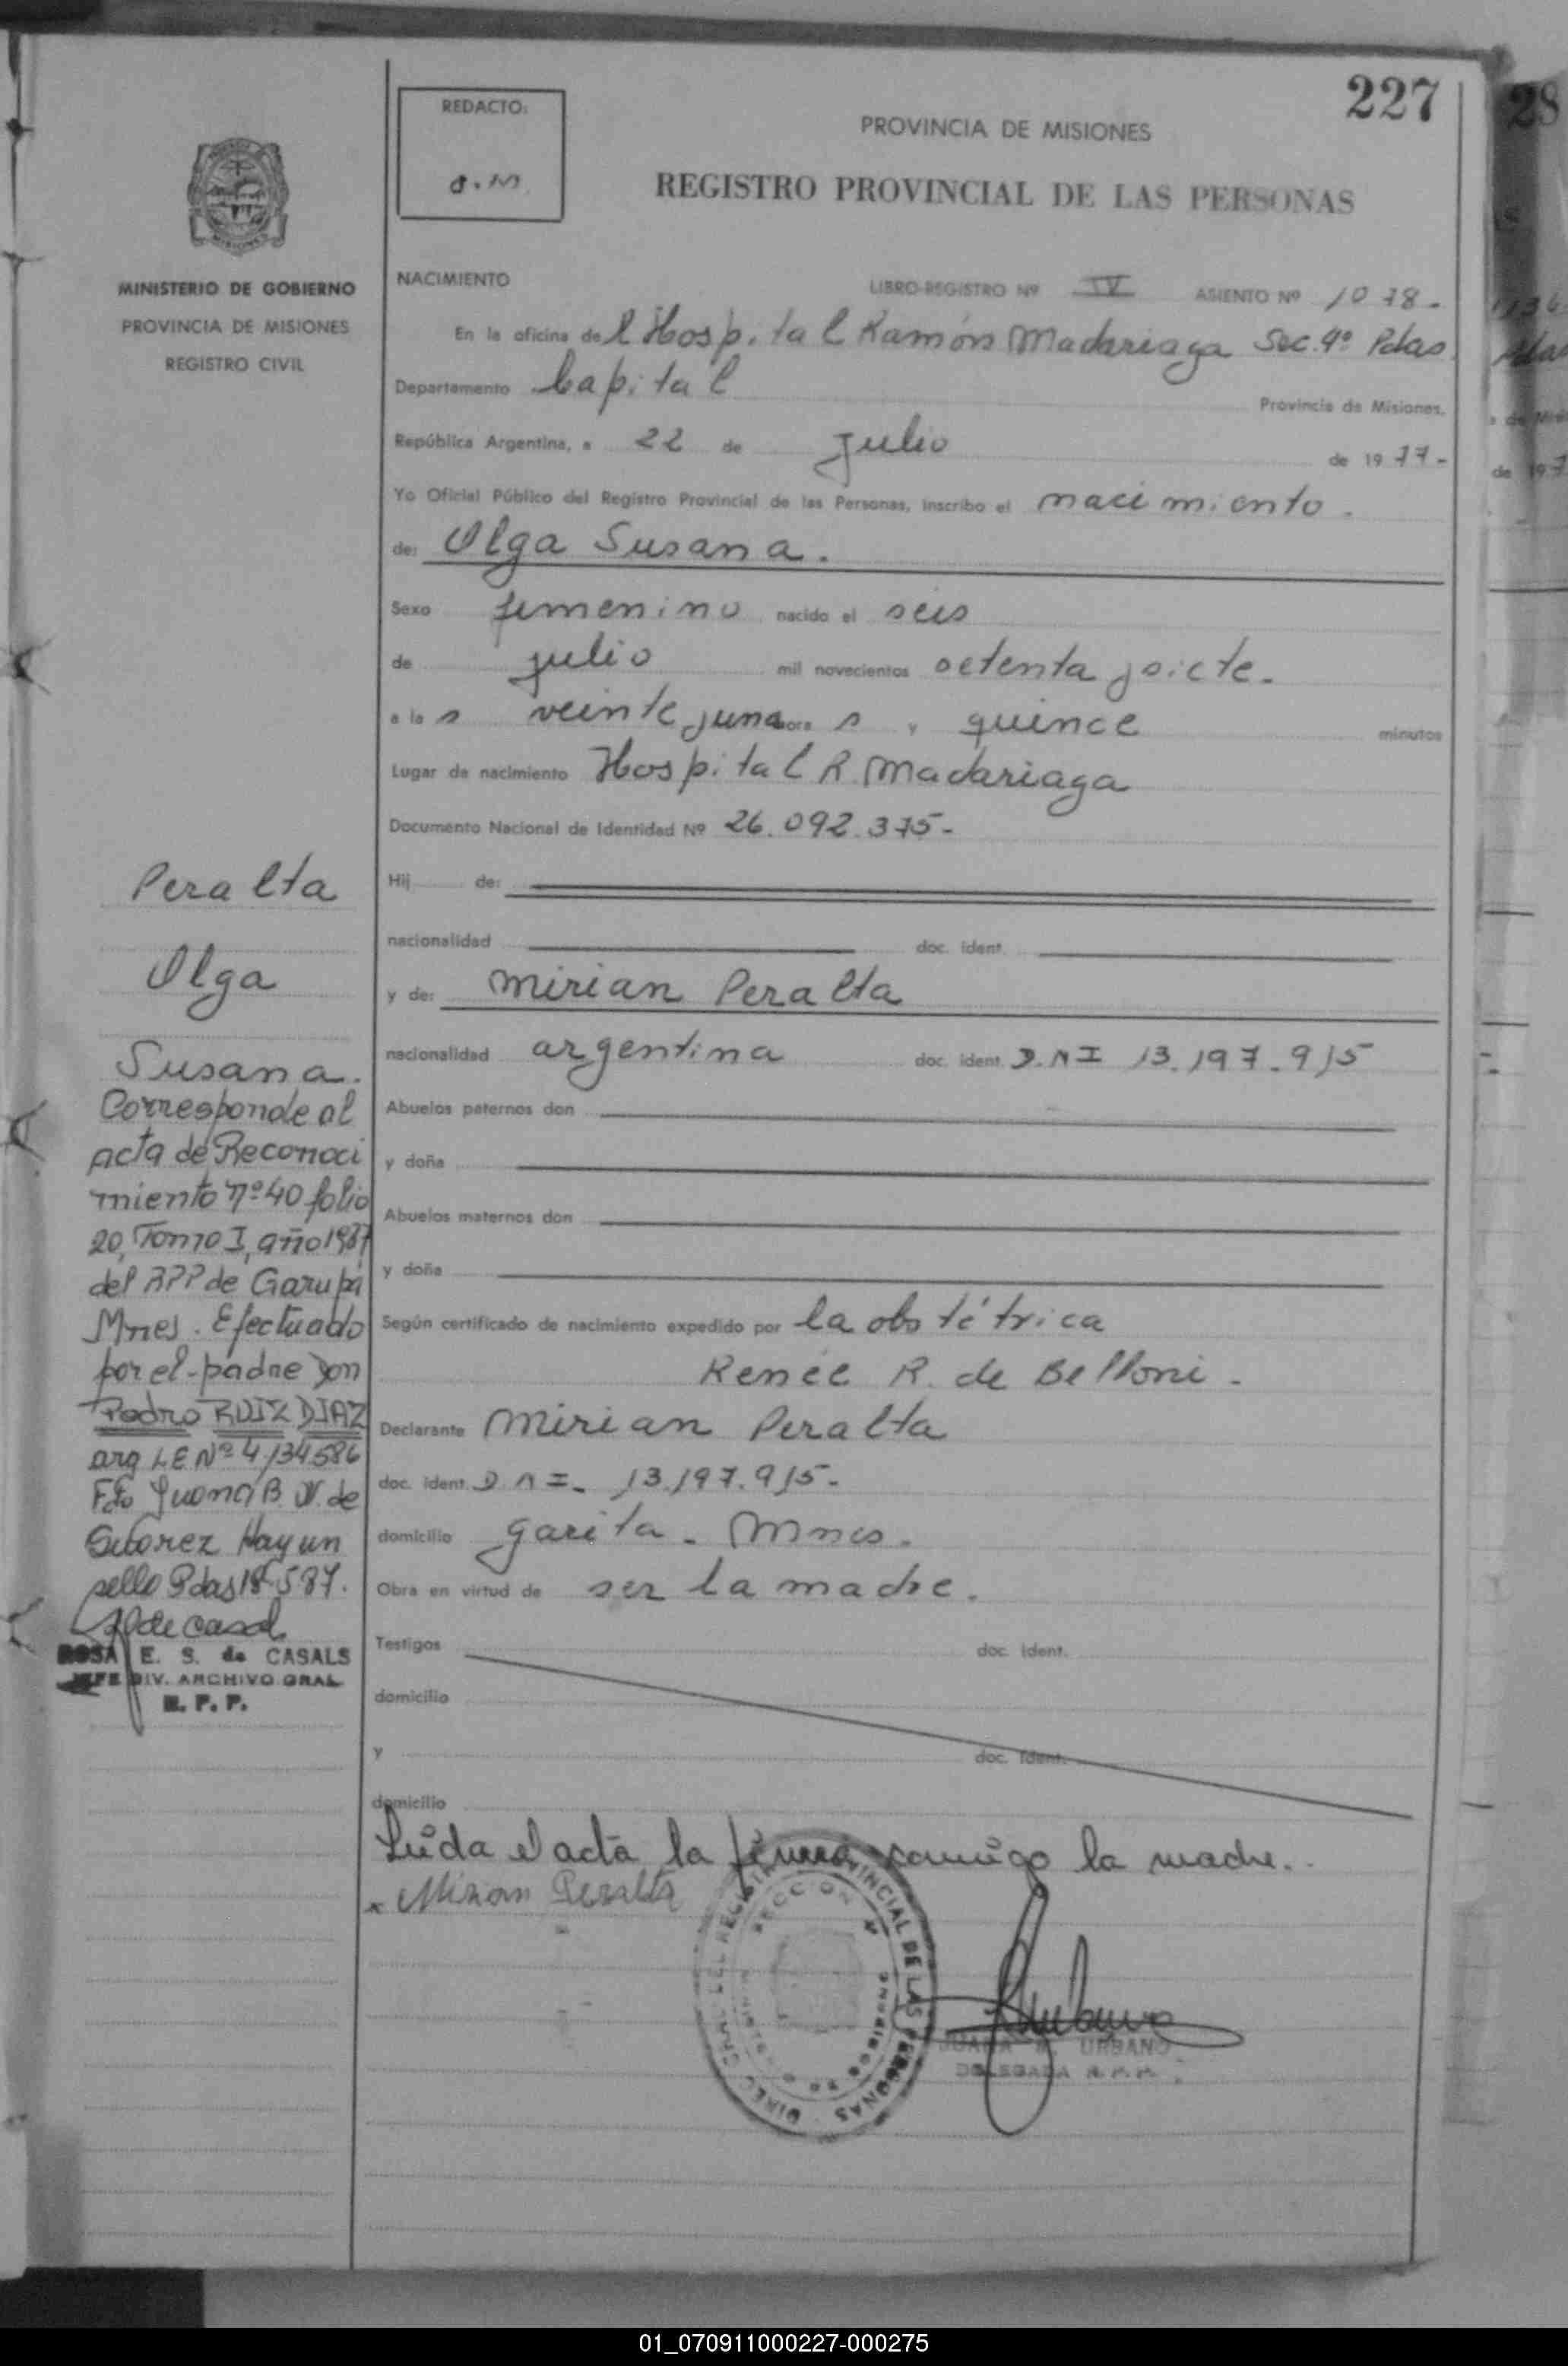 227
REDACTO:
PROVINCIA DE MISIONES
REGISTRO PROVINCIAL DE LAS PERSONAS
MINISTERIO DE GOBIERNO
PROVINCIA DE MISIONES
REGISTRO CIVIL
NACIMIENTO LIBRO-REGISTRO Nº IV ASIENTO Nº 1078-
En la oficina del Hospital Ramón Madariaga Sec. 9º Pdas
Departamento Capital Provincia de Misiones.
República Argentina, a 22 de Julio de 1977-
Yo Oficial Público del Registro Provincial de las Personas, inscribo el nacimiento.
de: Olga Susana.
Sexo femenino nacido el seis
de julio mil novecientos setenta y siete.
a las veinte y una horas y quince minutos
Lugar de nacimiento Hospital R. Madariaga
Documento Nacional de Identidad Nº 26.092.375-
Hij de:
nacionalidad doc. ident.
y de: Mirian Peralta
nacionalidad argentina doc. ident. D.N.I 13.197.915
Abuelos paternos don
y doña
Abuelos maternos don
y doña
Según certificado de nacimiento expedido por la obstétrica
Renée R. de Belloni.
Declarante Mirian Peralta
doc. ident. D.N.I. 13.197.915-
domicilio Garita. Mnes.
Obra en virtud de ser la madre.
Testigos doc. ident.
domicilio
y doc. ident.
domicilio
Leída el acta la firma conmigo la madre.
Mirian Peralta
Peralta
Olga
Susana.
Corresponde al
acta de Reconoci
miento nº 40 folio
20, Tomo I, año 1987
del RPP de Garupá
Mnes. Efectuado
por el padre Don
Pedro RUIZ DIAZ
arg LE Nº 4134586
Fdo Juana B. N. de
Hay un
sello Pdas 18-5-87.
ROSA E. S. de CASALS
JEFE DIV. ARCHIVO GRAL
R. P. P.
DIREC GRAL DEL REGISTRO PROVINCIAL DE LAS PERSONAS
SECCION
JUANA URBANO
DELEGADA
28
01_070911000227-000275